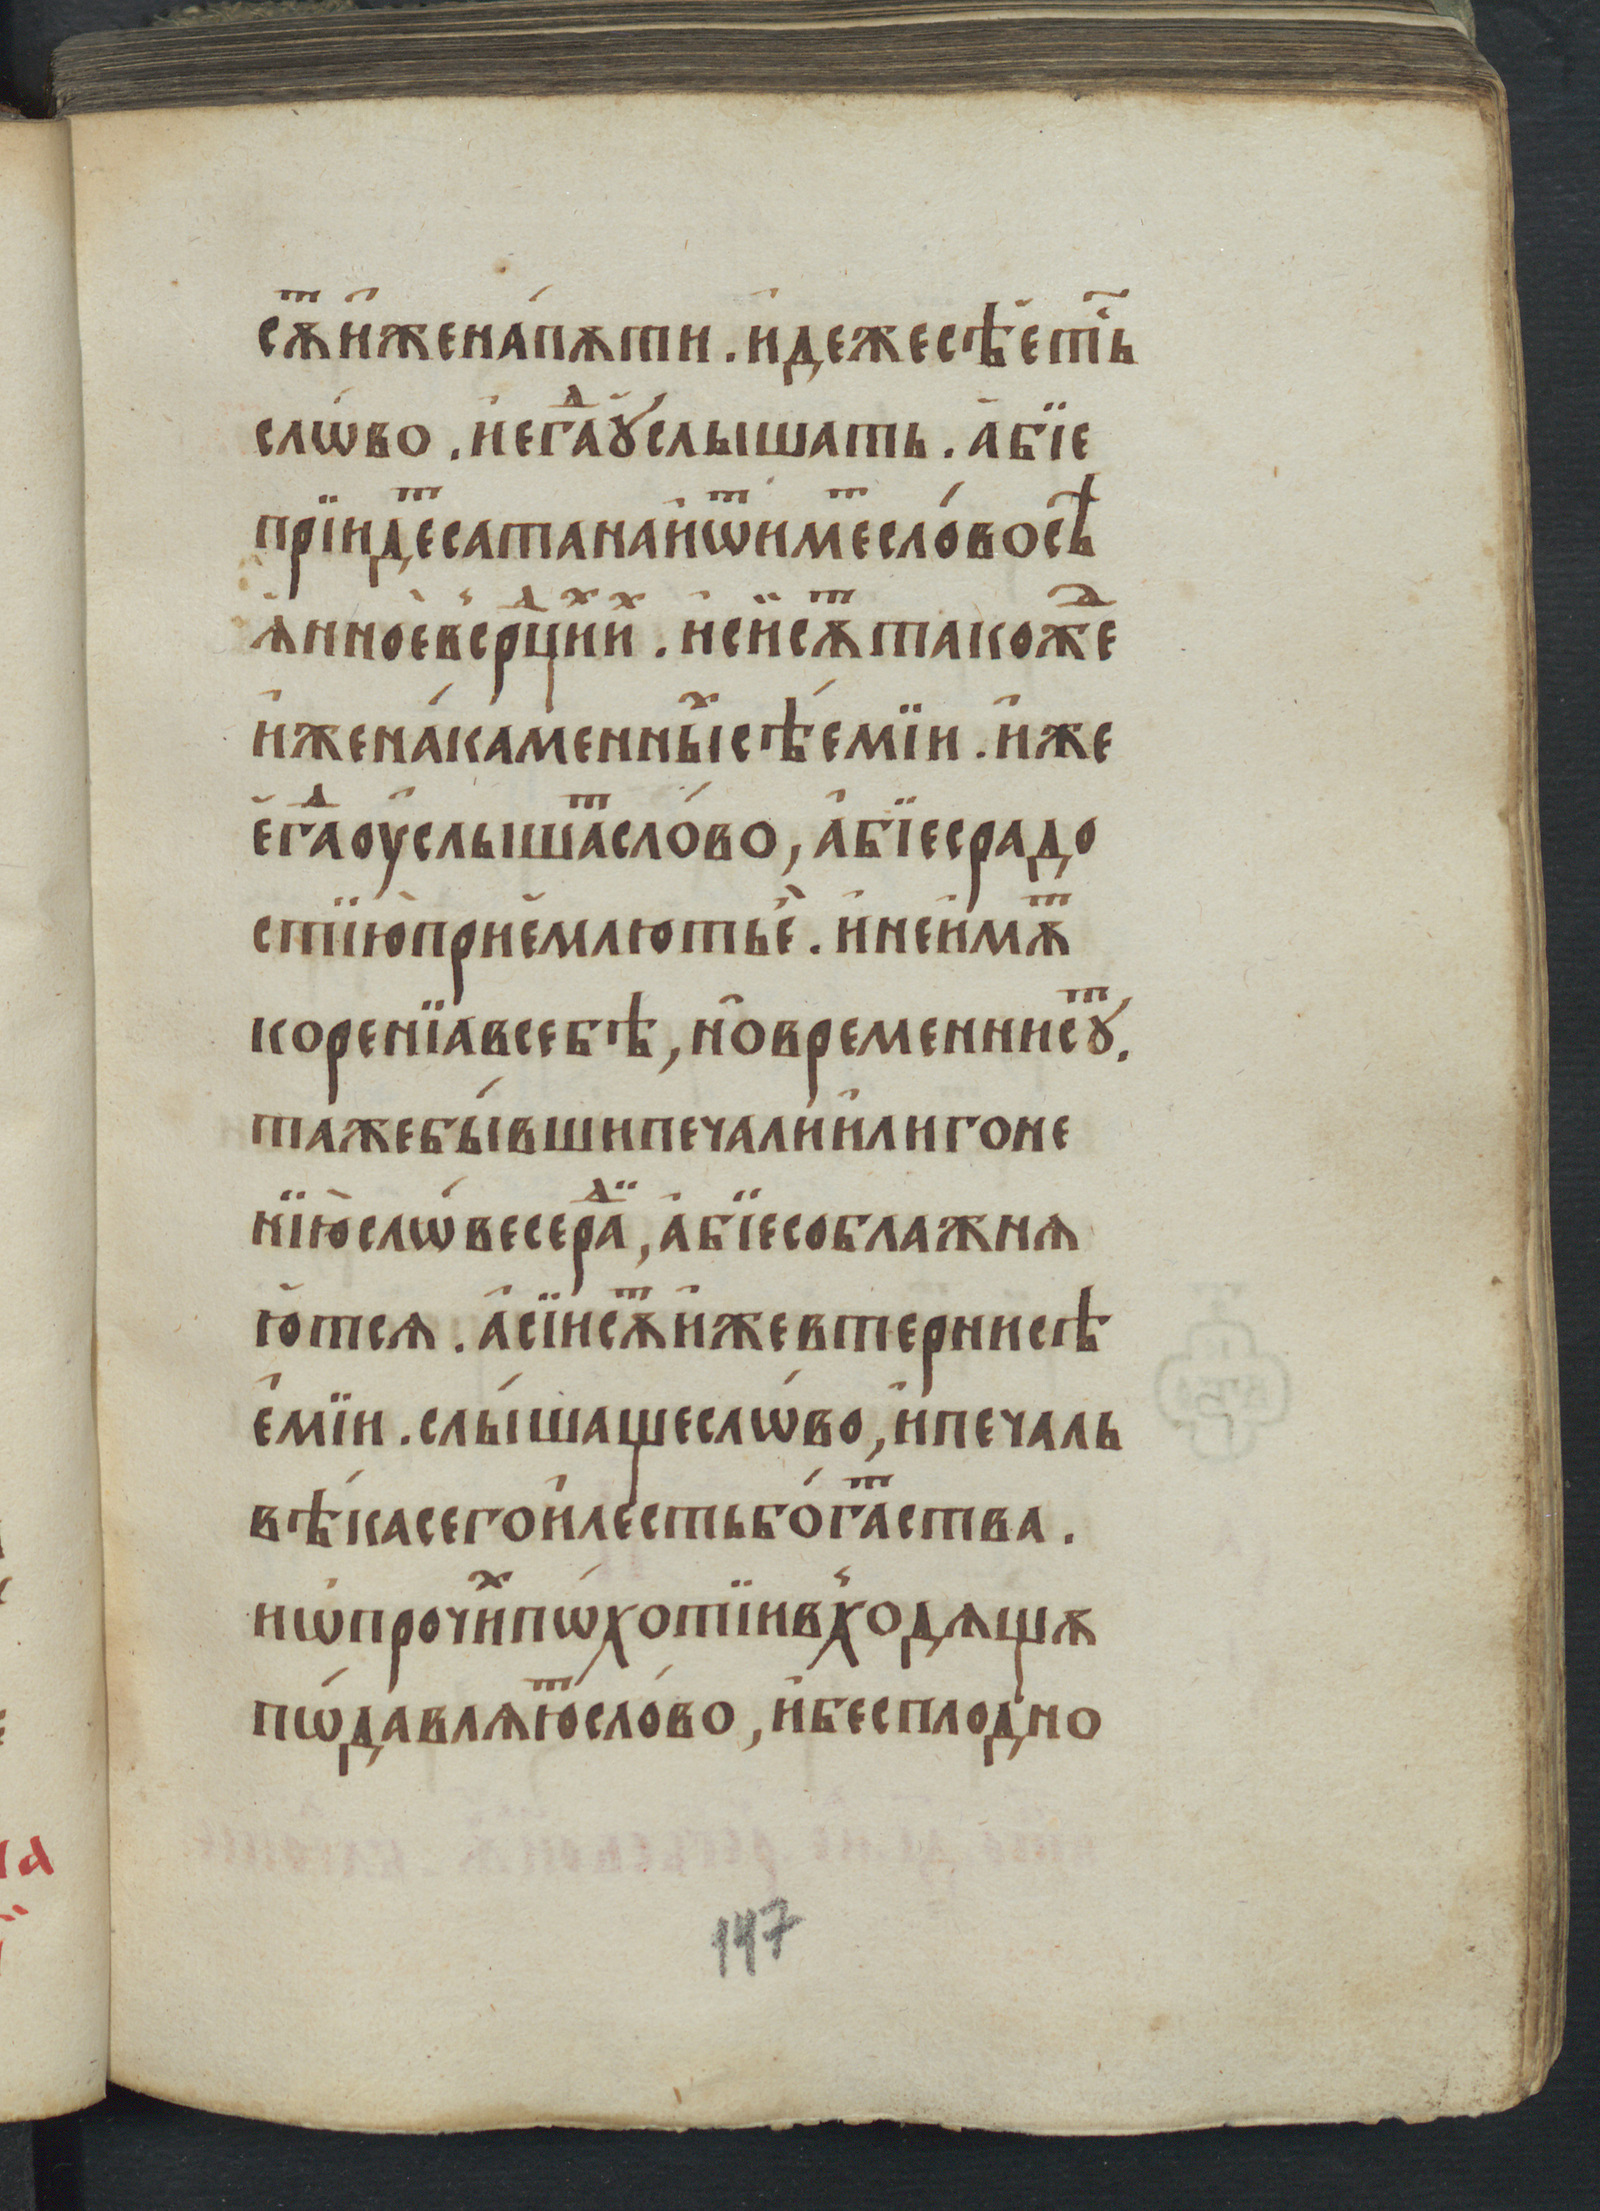 сѫⷮ и҆̑же на́пѫти . и҆дежесѣ́еть҇
слѡ́во . и҆егⷣа ꙋ҆́слышать . а҆бїе
прїидеⷮсатана и҆ѿиметⷮъсло́восѣ
ѧ҆нноевсерⷣцихⷯи . и҆ сїисѫⷮтакожеⷣ
и҆женака́менныⷯсѣ́емїи . и҆же
е҆гⷣаоу҆слышаⷮсло́во, а҆бїесрадо
стїю҆прие҆млютье҆̀ . и҆неи҆мѫⷮ
коренїавсебѣ, но҆временнисꙋⷮ.
тажебы́вшипечалии҆лигоне
нїю҆слѡ́весераⷣ, а҆бїесоблажнѧ
ю҆тсѧ . а҆сїисѫⷮи҆жевтернисѣ
е҆мїи . слы́шащеслѡ́во, и҆печаль
вѣ́касегои҆лестьбо́гаⷮства .
иѡ҆прочиⷯпѡ́хотїивхⷭ҇одѧщѫ
пѡ́давлѧюⷮсло́во, и҆бесплодно
147